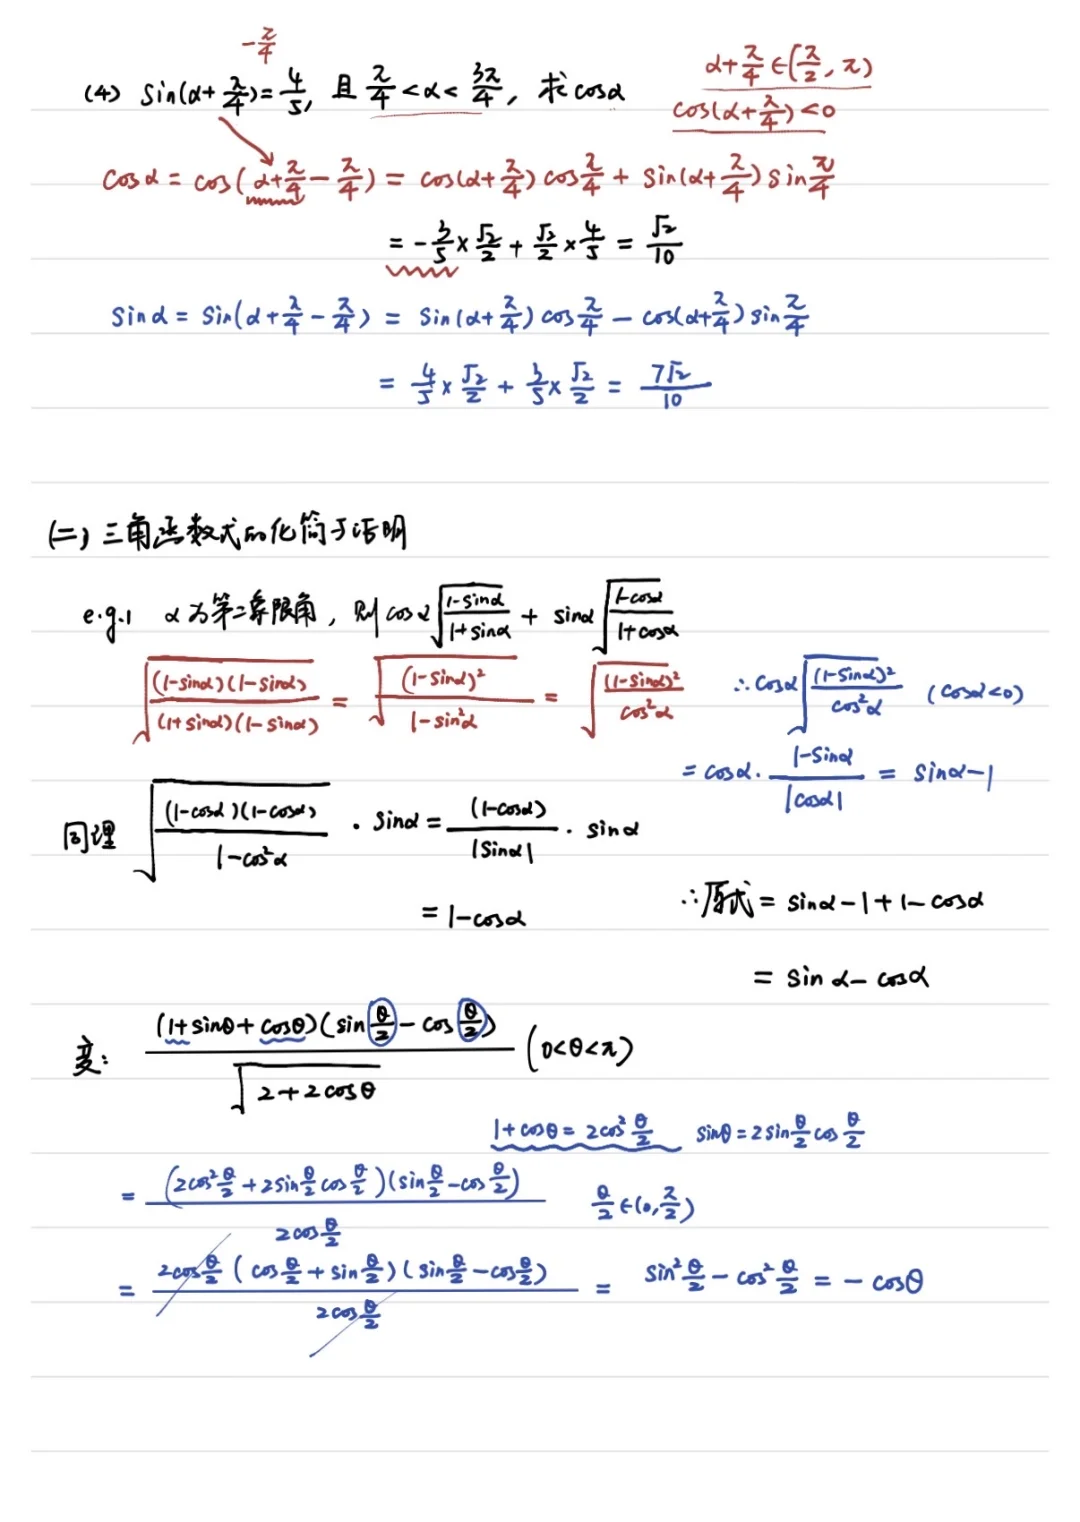 -π/4
(4) sin(α+π/4)=4/5, 且 π/4<α<3π/4, 求cosα
α+π/4∈(π/2, π)
cos(α+π/4)<0
cosα = cos(α+π/4-π/4) = cos(α+π/4)cosπ/4 + sin(α+π/4)sinπ/4
= -3/5×√2/2 + √2/2×4/5 = √2/10
sinα = sin(α+π/4-π/4) = sin(α+π/4)cosπ/4 - cos(α+π/4)sinπ/4
= 4/5×√2/2 + 3/5×√2/2 = 7√2/10
(二) 三角函数式的化简与证明
e.g.1 α为第二象限角, 则cosα√((1-sinα)/(1+sinα)) + sinα√((1-cosα)/(1+cosα))
√((1-sinα)(1-sinα)/((1+sinα)(1-sinα))) = √((1-sinα)²/(1-sin²α)) = √((1-sinα)²/cos²α)
∴cosα√((1-sinα)²/cos²α) (cosα<0)
= cosα·(1-sinα)/|cosα| = sinα-1
同理 √((1-cosα)(1-cosα)/(1-cos²α))·sinα = (1-cosα)/|sinα|·sinα
= 1-cosα
∴原式 = sinα-1+1-cosα
= sinα-cosα
变: (1+sinθ+cosθ)(sinθ/2-cosθ/2)/√(2+2cosθ) (0<θ<π)
1+cosθ=2cos²θ/2 sinθ=2sinθ/2cosθ/2
= (2cos²θ/2+2sinθ/2cosθ/2)(sinθ/2-cosθ/2)/(2cosθ/2) θ/2∈(0,π/2)
= 2cosθ/2(cosθ/2+sinθ/2)(sinθ/2-cosθ/2)/(2cosθ/2) = sin²θ/2-cos²θ/2 = -cosθ